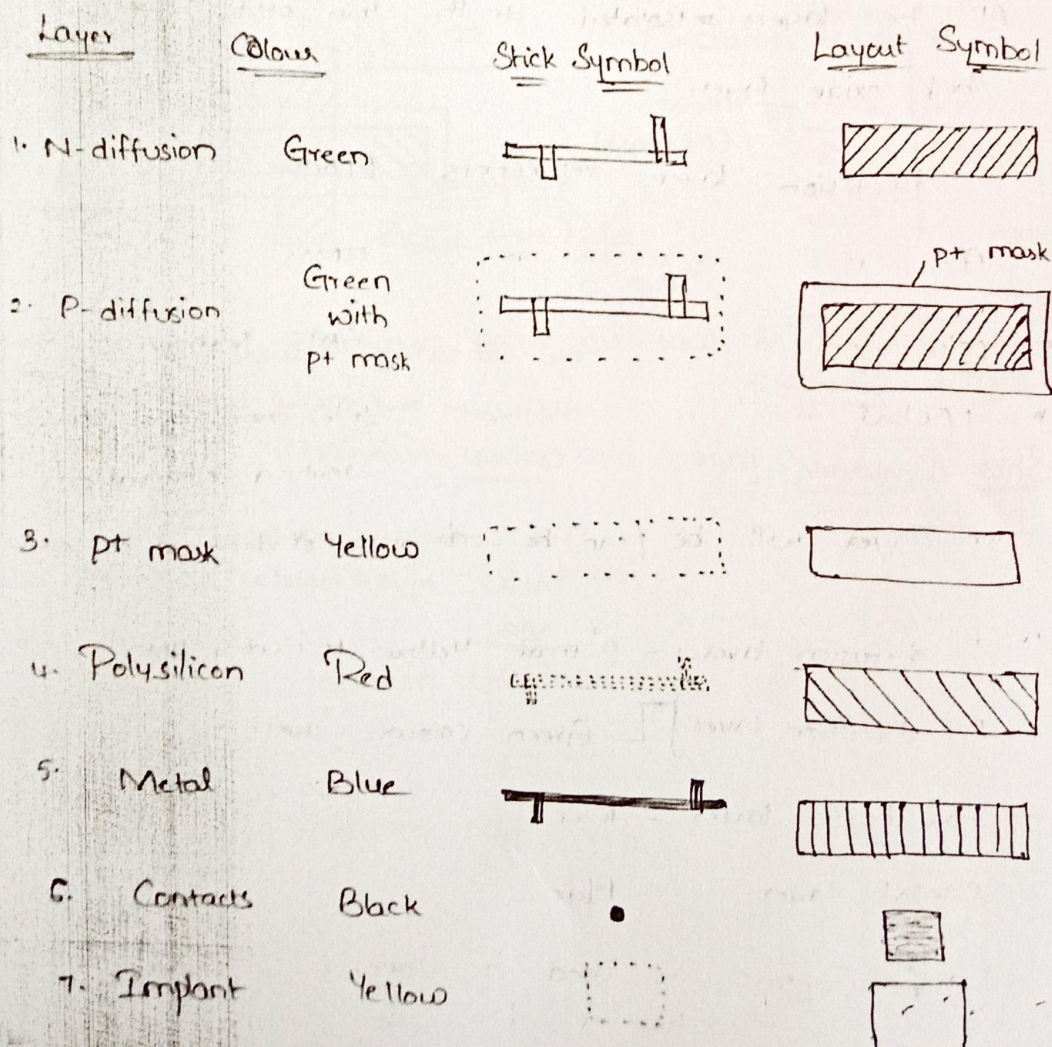 Layer Colour Stick Symbol Layout Symbol
1. N-diffusion Green
p+ mask
2. P-diffusion Green with p+ mask
3. p+ mask Yellow
4. Polysilicon Red
5. Metal Blue
6. Contacts Black
7. Implant Yellow